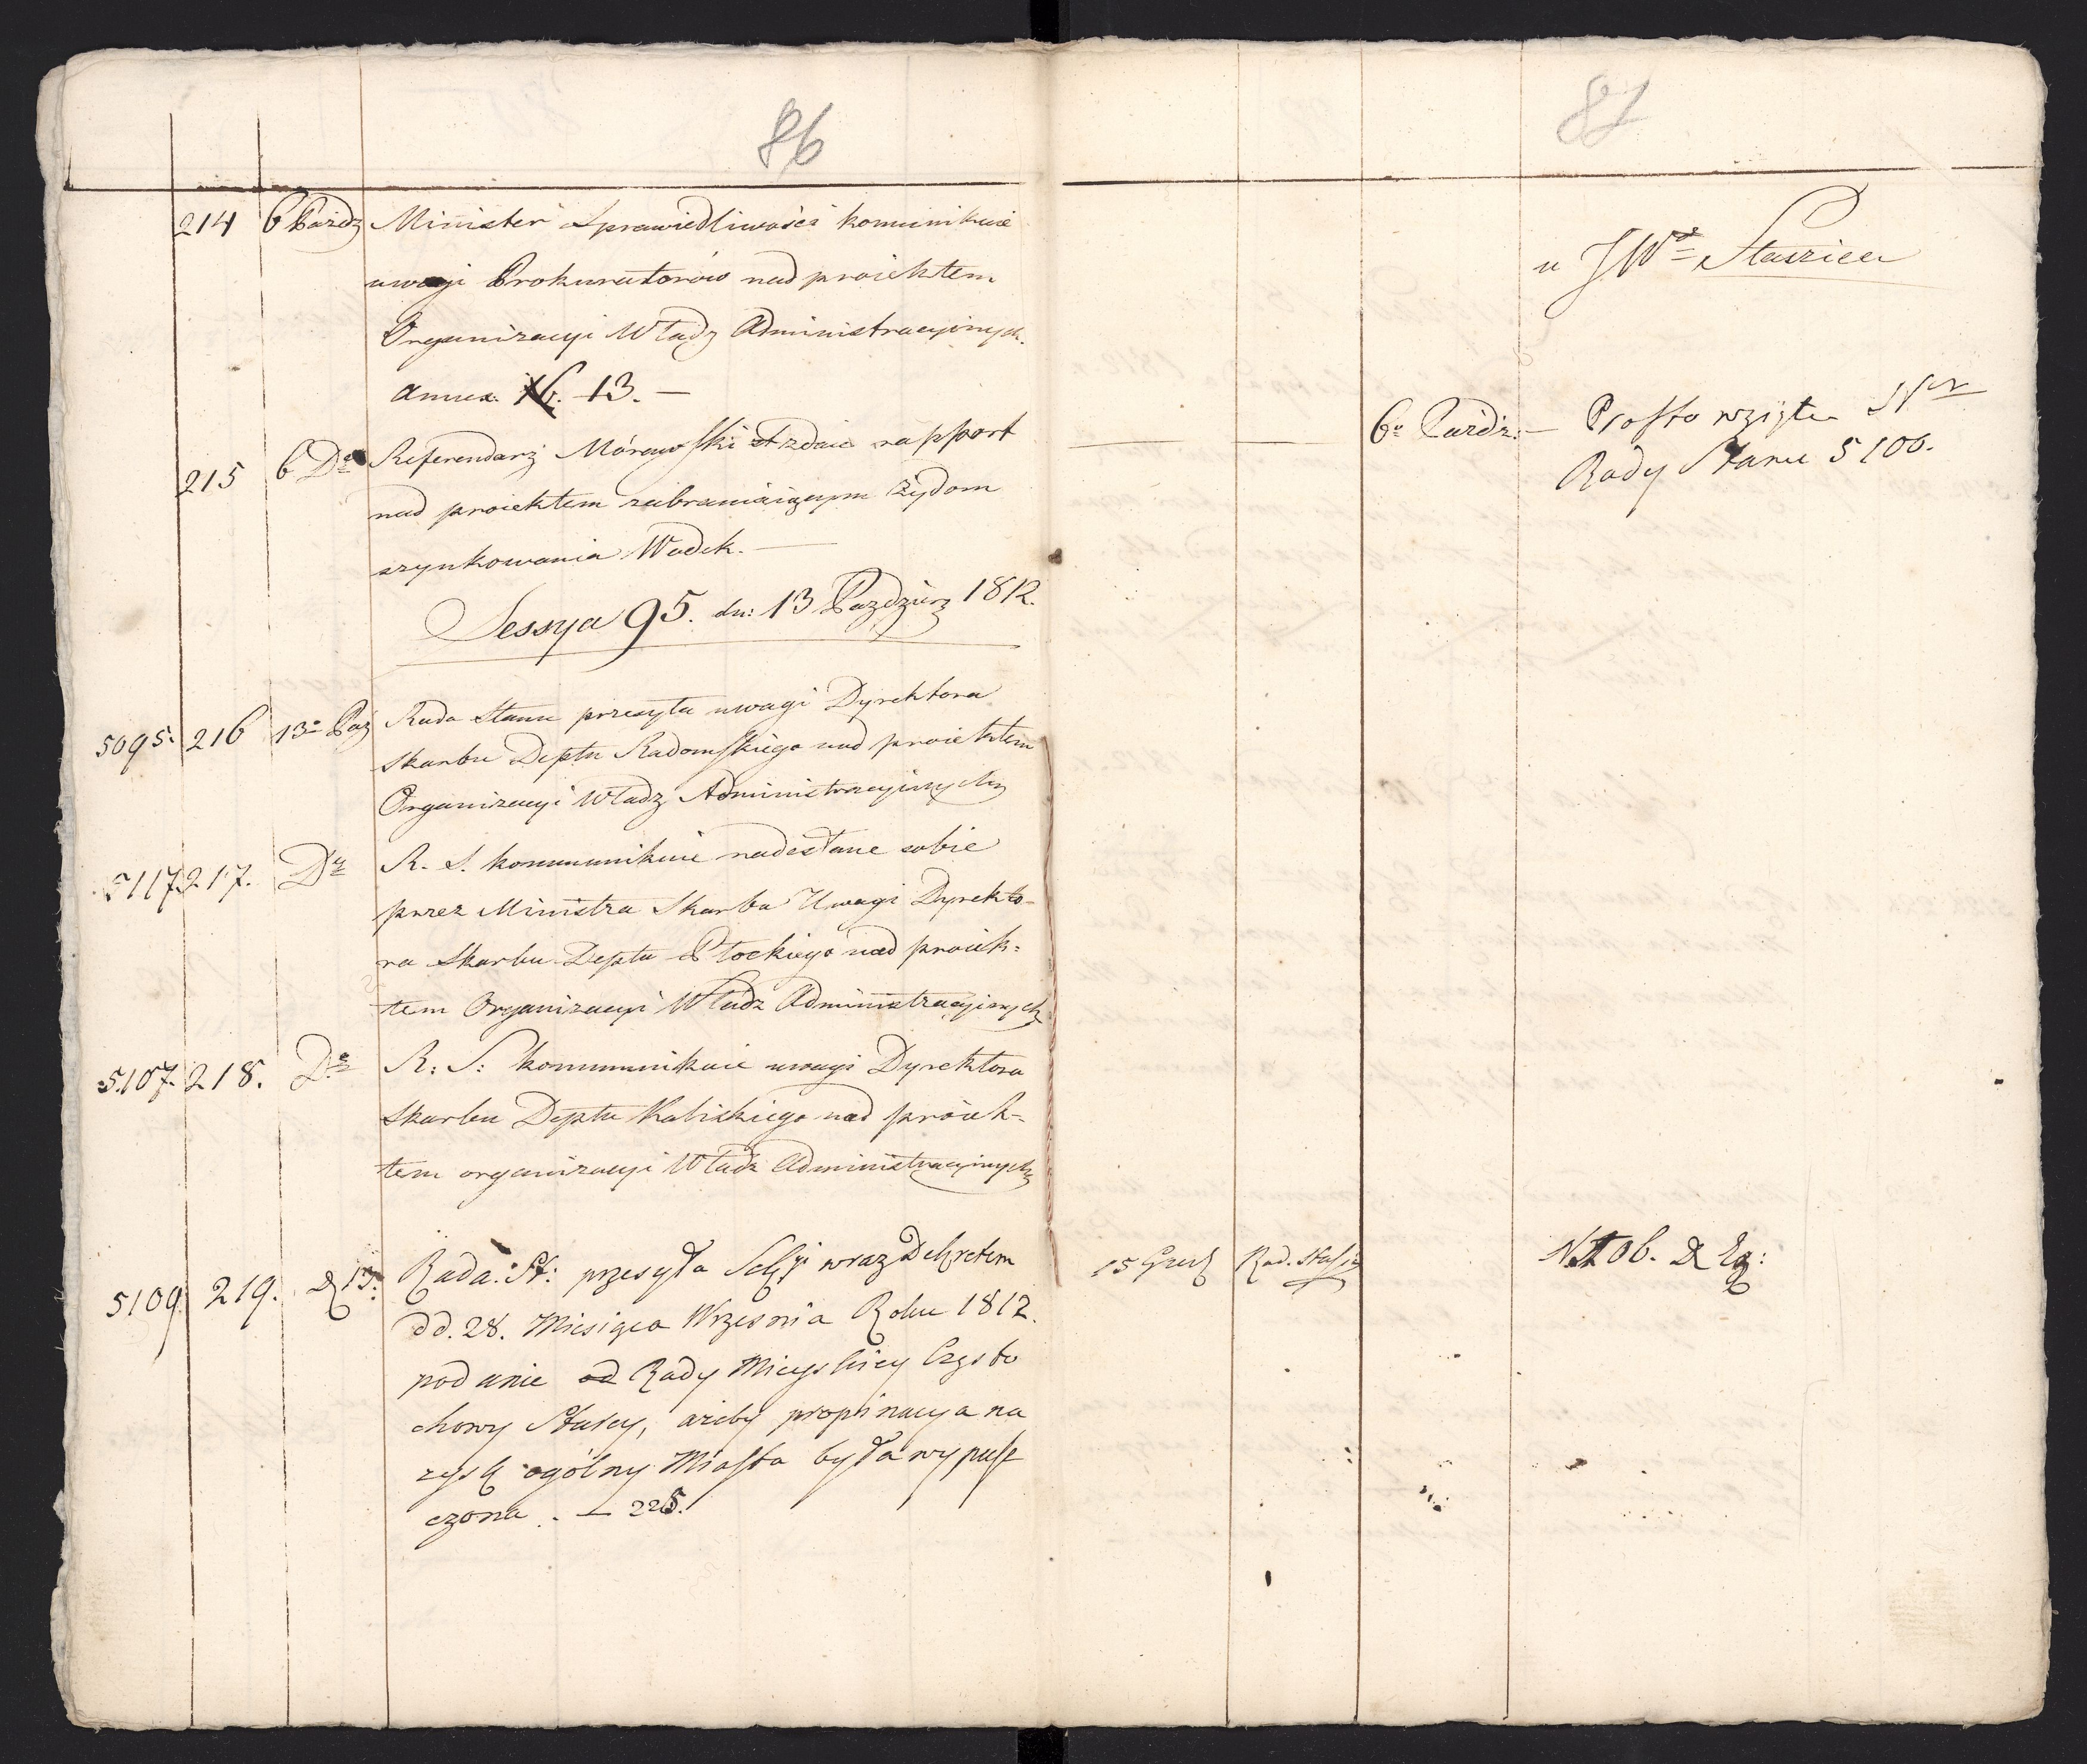 86
214 6 Paźdz Minister Sprawiedliwości kommunikuie
uwagi Prokuratorów nad proiektem
Organizacyi Władz Administracyinych.
annex. 13. —
215 6 Do Referendarz Morawski zdaie rapport
nad proiektem zabraniaiącym Żydom
szynkowania Wodek. —
Sessya 95. dn: 13 Pazdzierz 1812.
5095. 216 13o Paz Rada Stanu przesyła uwagi Dyrektora
Skarbu Deptu Radomskiego nad proiektem
Organizacyi Władz Administracyinych
5117 217. Do R. S. kommunikuie nadesłane sobie
przez Ministra Skarbu Uwagi Dyrekto-
ra Skarbu Deptu Płockiego nad proiek=
tem Organizacyi Władz Administracyinych
5107. 218. Do R: S: kommunikuie uwagi Dyrektora
Skarbu Deptu Kaliskiego nad proiek-
tem organizacyi Władz Administracyinych
5109 219. 13. Rada St: przesyła Sekcyi wraz Dekretem
dd. 28. Miesiąca Wrzesnia Roku 1812.
podanie od Rady Mieyskiey Często
chowy Starey, ażeby propinacya na
zysk ogólny Miasta była wypusz
czona. — 225.
87
u JWo Staszica
6o Paźdz. — Prosto wzięte Nr
Rady Stanu 5100.
15 Grud Rad. Stasz